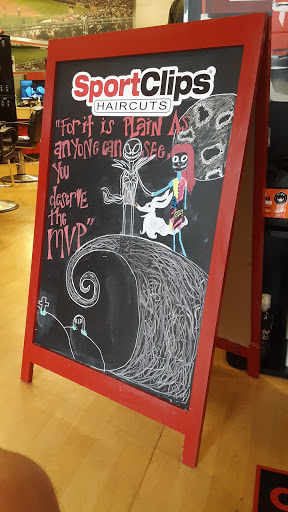 SportClips
HAIRCUTS
"For it is Plain As
anyone can see,
you
deserve
the
MVP"
RIP